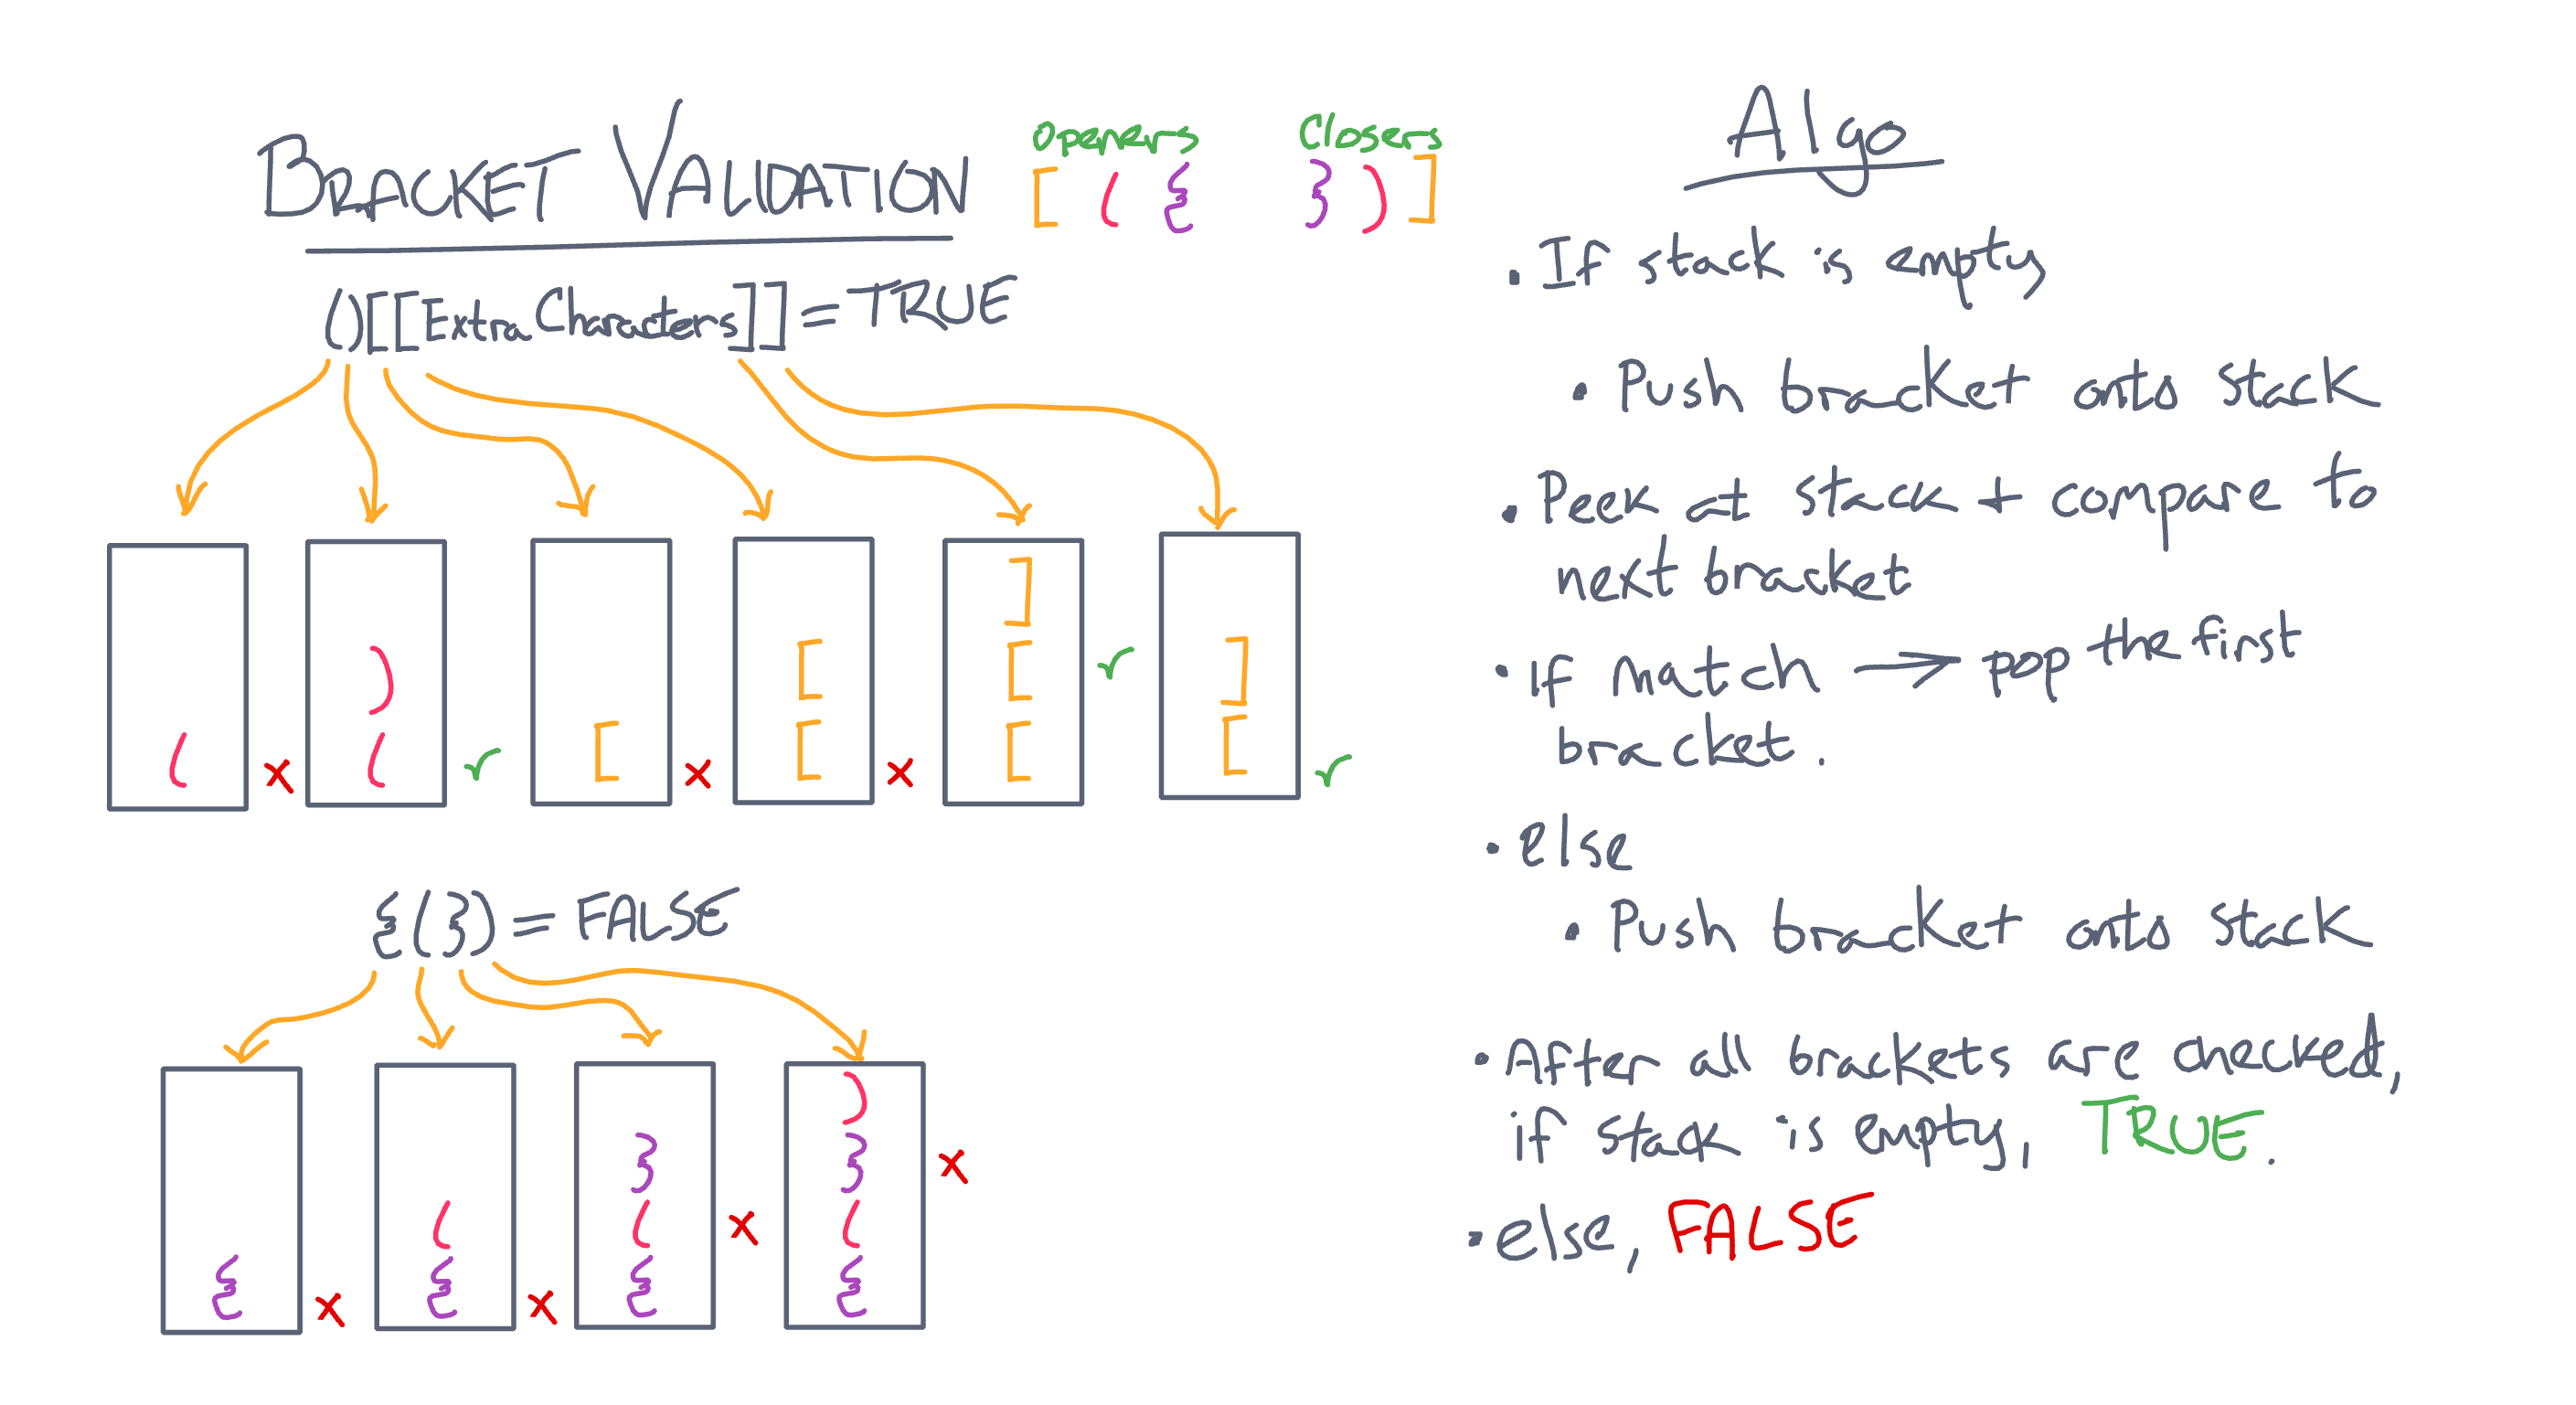 BRACKET VALIDATION
Openers
Closers
[ ( {
} ) ]
()[[ExtraCharacters]] = TRUE
(
)
(
[
[
[
]
[
[
]
[
{(}) = FALSE
{
(
{
}
(
{
)
}
(
{
Algo
• If stack is empty
• Push bracket onto stack
• Peek at stack + compare to
next bracket
• if match → pop the first
bracket.
• else
• Push bracket onto stack
• After all brackets are checked,
if stack is empty, TRUE.
• else, FALSE